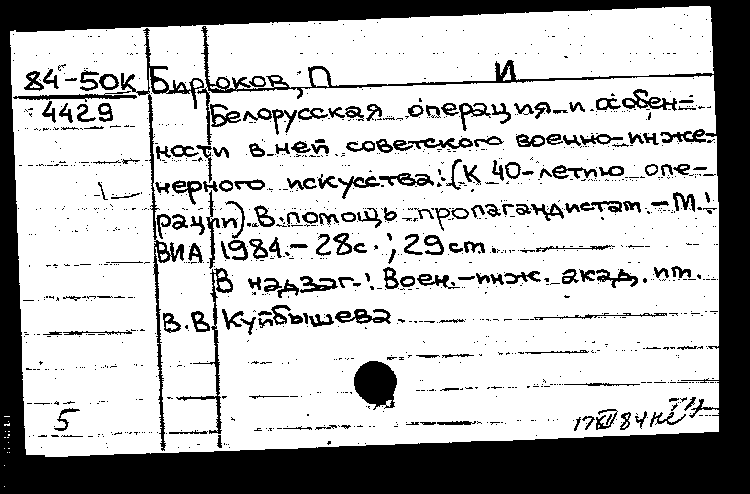 84-50К Бирюков, П И
4429 Белорусская операция и особен-
ности в ней советского военно-инже-
нерного искусства: (К 40-летию опе-
рации). В помощь пропагандистам. - М.:
ВИА, 1984. - 28с.; 29см.
В надзаг.: Воен.-инж. акад. им.
В.В. Куйбышева.
5 17XII 84